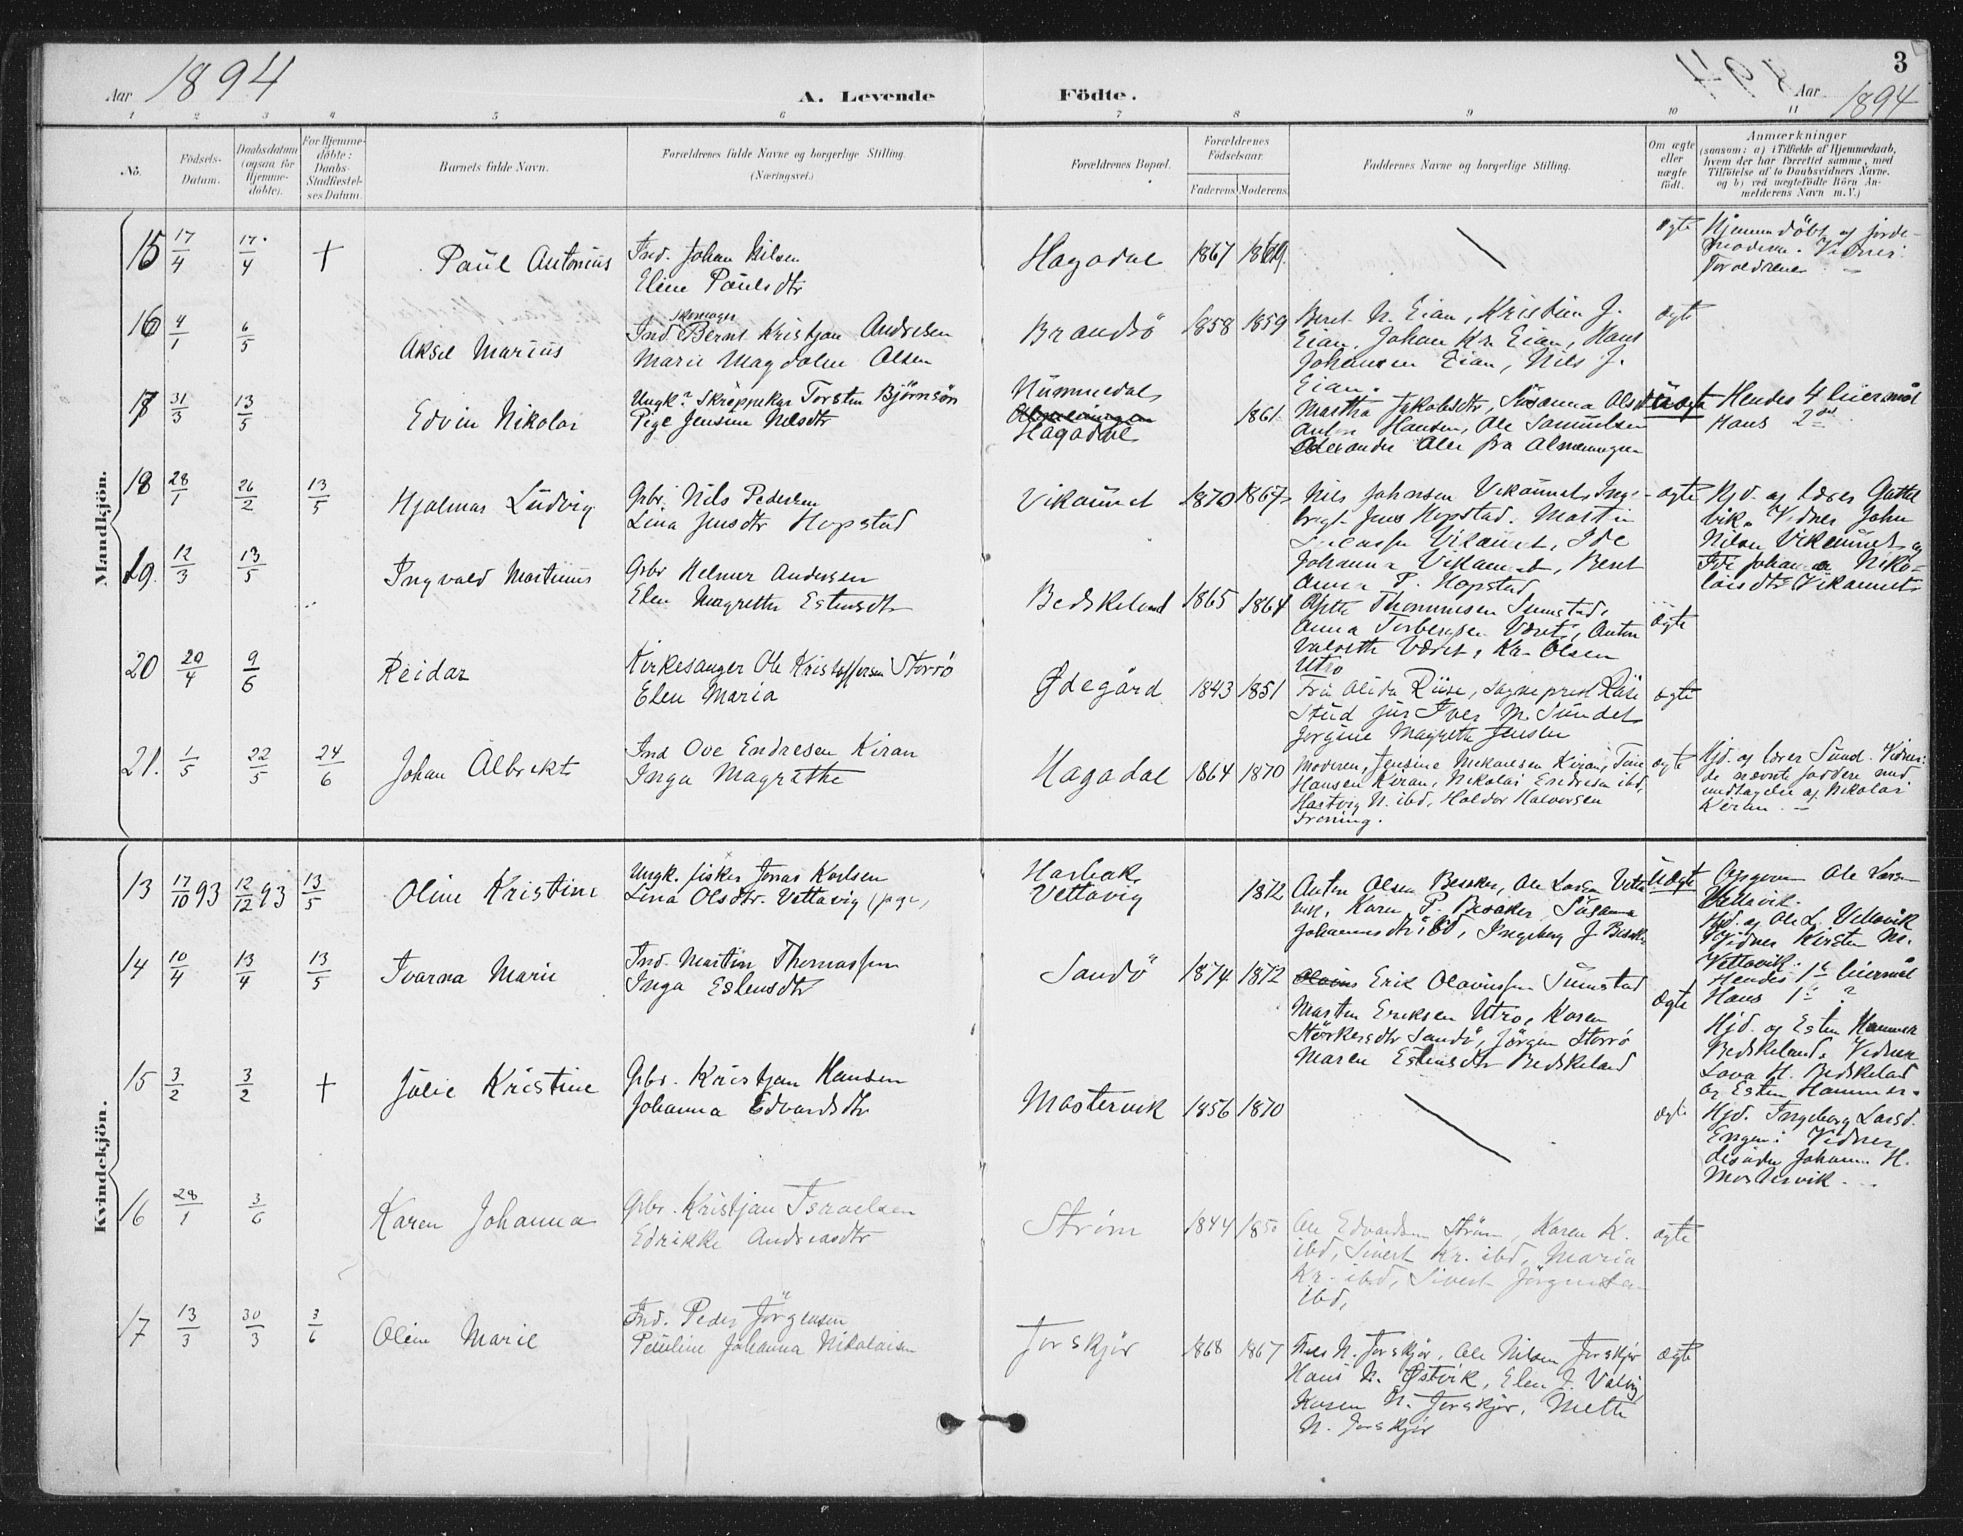 1894
3
Aar
A. Levende
Födte.
Aar 1894
1 2 3 4 5 6 7 8 9 10 11
No.
Födsels-
Datum.
Daabsdatum
(ogsaa for
Hjemme-
döbte).
For Hjemme-
döbte:
Daabs-
Stadfæstel-
ses Datum.
Barnets fulde Navn.
Forældrenes fulde Navne og borgerlige Stilling.
(Næringsvei.)
Forældrenes Bopæl.
Forældrenes
Födselsaar.
Faderens Moderens
Faddernes Navne og borgerlige Stilling.
Om ægte
eller
uægte
født.
Anmærkninger
(saasom: a) i Tilfælde af Hjemmedaab,
hvem der har forrettet samme, med
Tilföielse af to Daabsvidners Navne.
og b) ved uægtefödte Börn An-
melderens Navn m.V.)
Mandkjön.
15 17/4 17/4 + Paul Antonius
Ind. Johan Nilsen
Eline Paulsdtr
Hagadal 1867
ægte
Hjemmedöbt af jorde-
moderen. Vidner
Foreldrene
16 4/1 6/5 Aksel Marius
Skomager
Ind. Bernt Kristjan Andresen
Marie Magdalen Olsen
Brandsö 1858 1859
Beret N. Eian, Kristian J.
Eian, Johan Kr. Eian, Hans
Johansen Eian, Nils J.
Eian.
ægte
17 31/3 13/5 Edvin Nikolai
Ungk. Skræppekar Torsten Björnsön
Pige Jensine Nilsdtr
Nummedal
Almenningen
Hagadal
1861
Martha Jakobsdtr, Susanna Olsdtr
Anton Hansen, Ole Samuelsen
Alexander Olsen fra Almenningen
uægte
Hendes 4 leiermål
Hans 2det
18 28/1 26/2 13/5 Hjalmar Ludvig
Gbr. Nils Pedersen
Lina Jensdtr Hopstad
Vikaunet 1870 1867
Nils Johnsen Vikaunet, Inge-
brigt Jens Hopstad. Martin
Lucassen Vikaunet, Ide
Johanna Vikaunet, Beret
Anna P. Hopstad
ægte
Hjd. af Lærer Guttel
vik. Vidner John
Nilsen Vikaunet og
Ide Johanna Niko-
laisdtr Vikaunet
19. 12/3 13/5 Ingvald Martinus
Gbr Helmer Andersen
Elen Magrethe Estensdtr
Bedskeland 1865 1864
Thommesen Sumstad,
Anna Torbergsen Været, Anton
Valseth Været, Kr. Olsen
Utro
ægte
20 20/4 9/6 Reidar
Kirkesanger Ole Kristoffersen Storrö
Elen Maria
Ødegård 1843 1851
Fru Alida Riise, Sogneprest Riise
Stud jur Iver M. Sundet
Jorgine Magrethe Jensen
ægte
21. 1/5 22/5 24/6 Johan Albrekt
Ind Ove Endresen Kiran
Inga Magrethe
Hagadal 1864 1870
Moderen, Jensine Mekaelsen Kiran, Tine
Hansen Kiran, Nikolai Endresen ibd,
Hartvig N. ibd, Haldor Halvorsen
Troning.
ægte
Hjd. af lærer Sund. Vidner:
de nævnte faddere med
undtagelse af Nikolai
Kiran.
Kvindekjön.
13 17/10 93 12/12 93 13/5 Oline Kristine
Ungk. fisker Jonas Karlsen
Lina Olsdtr. Vettavig (pige)
Harbak
Vettavig
1872
Anton Olsen Besaker, Ole Larsen Vetta
vik, Karen P. Besaker, Susanna
Johannesdtr ibd, Ingeborg J. Besaker
Uægte
Opgiven Ole Larsen
Vettavik.
Hjd. af Ole L. Vettavik
Vidner Kirsten M.
Vettavik.
Hendes 1ste leiermål
Hans 1ste ?
14 10/4 13/4 13/5 Ivarna Marie
Ind. Martin Thomassen
Inga Estensdtr
Sandö 1874 1872
Erik Olavussen Sumstad
Martin Eriksen Utro, Karen
Störkersdtr Sandö, Jörgen Storrö
Maren Estensdtr Bedskeland
Ægte
Hjd. af Esten Hammer
Bedskeland. Vidner
Lava H. Bedskeland
og Esten Hammer.
15 3/2 3/2 + Julie Kristine
Gbr. Kristjan Hansen
Johanna Edvardsdtr
Mastervik 1856 1870
ægte
Hjd. Ingeborg Larsd.
Engen: Vidner
desuden Johan H.
Mastervik.
16 28/1 3/6 Karen Johanna
Gbr. Kristjan Israelsen
Edrikke Andreasdtr
Ström 1844 1850
Ole Edvardsen Ström, Karen K.
ibd, Sivert Kr. ibd, Maria
Kr. ibd, Sivert Jörgensen
ibd,
ægte
17 13/3 30/3 3/6 Oline Marie
Ind. Peder Jörgensen
Pauline Johanna Nikolaisen
Torskjör 1868 1867
Nils N. Torskjör, Ole Nilsen Torskjör
Hans N. Østvik, Elen J. Valvig
Karen N. Torskjör, Mette
N. Torskjör
ægte